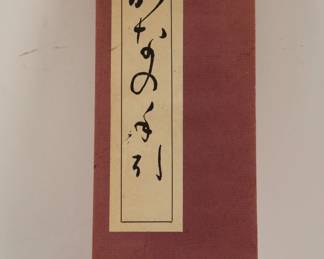 かなの手引